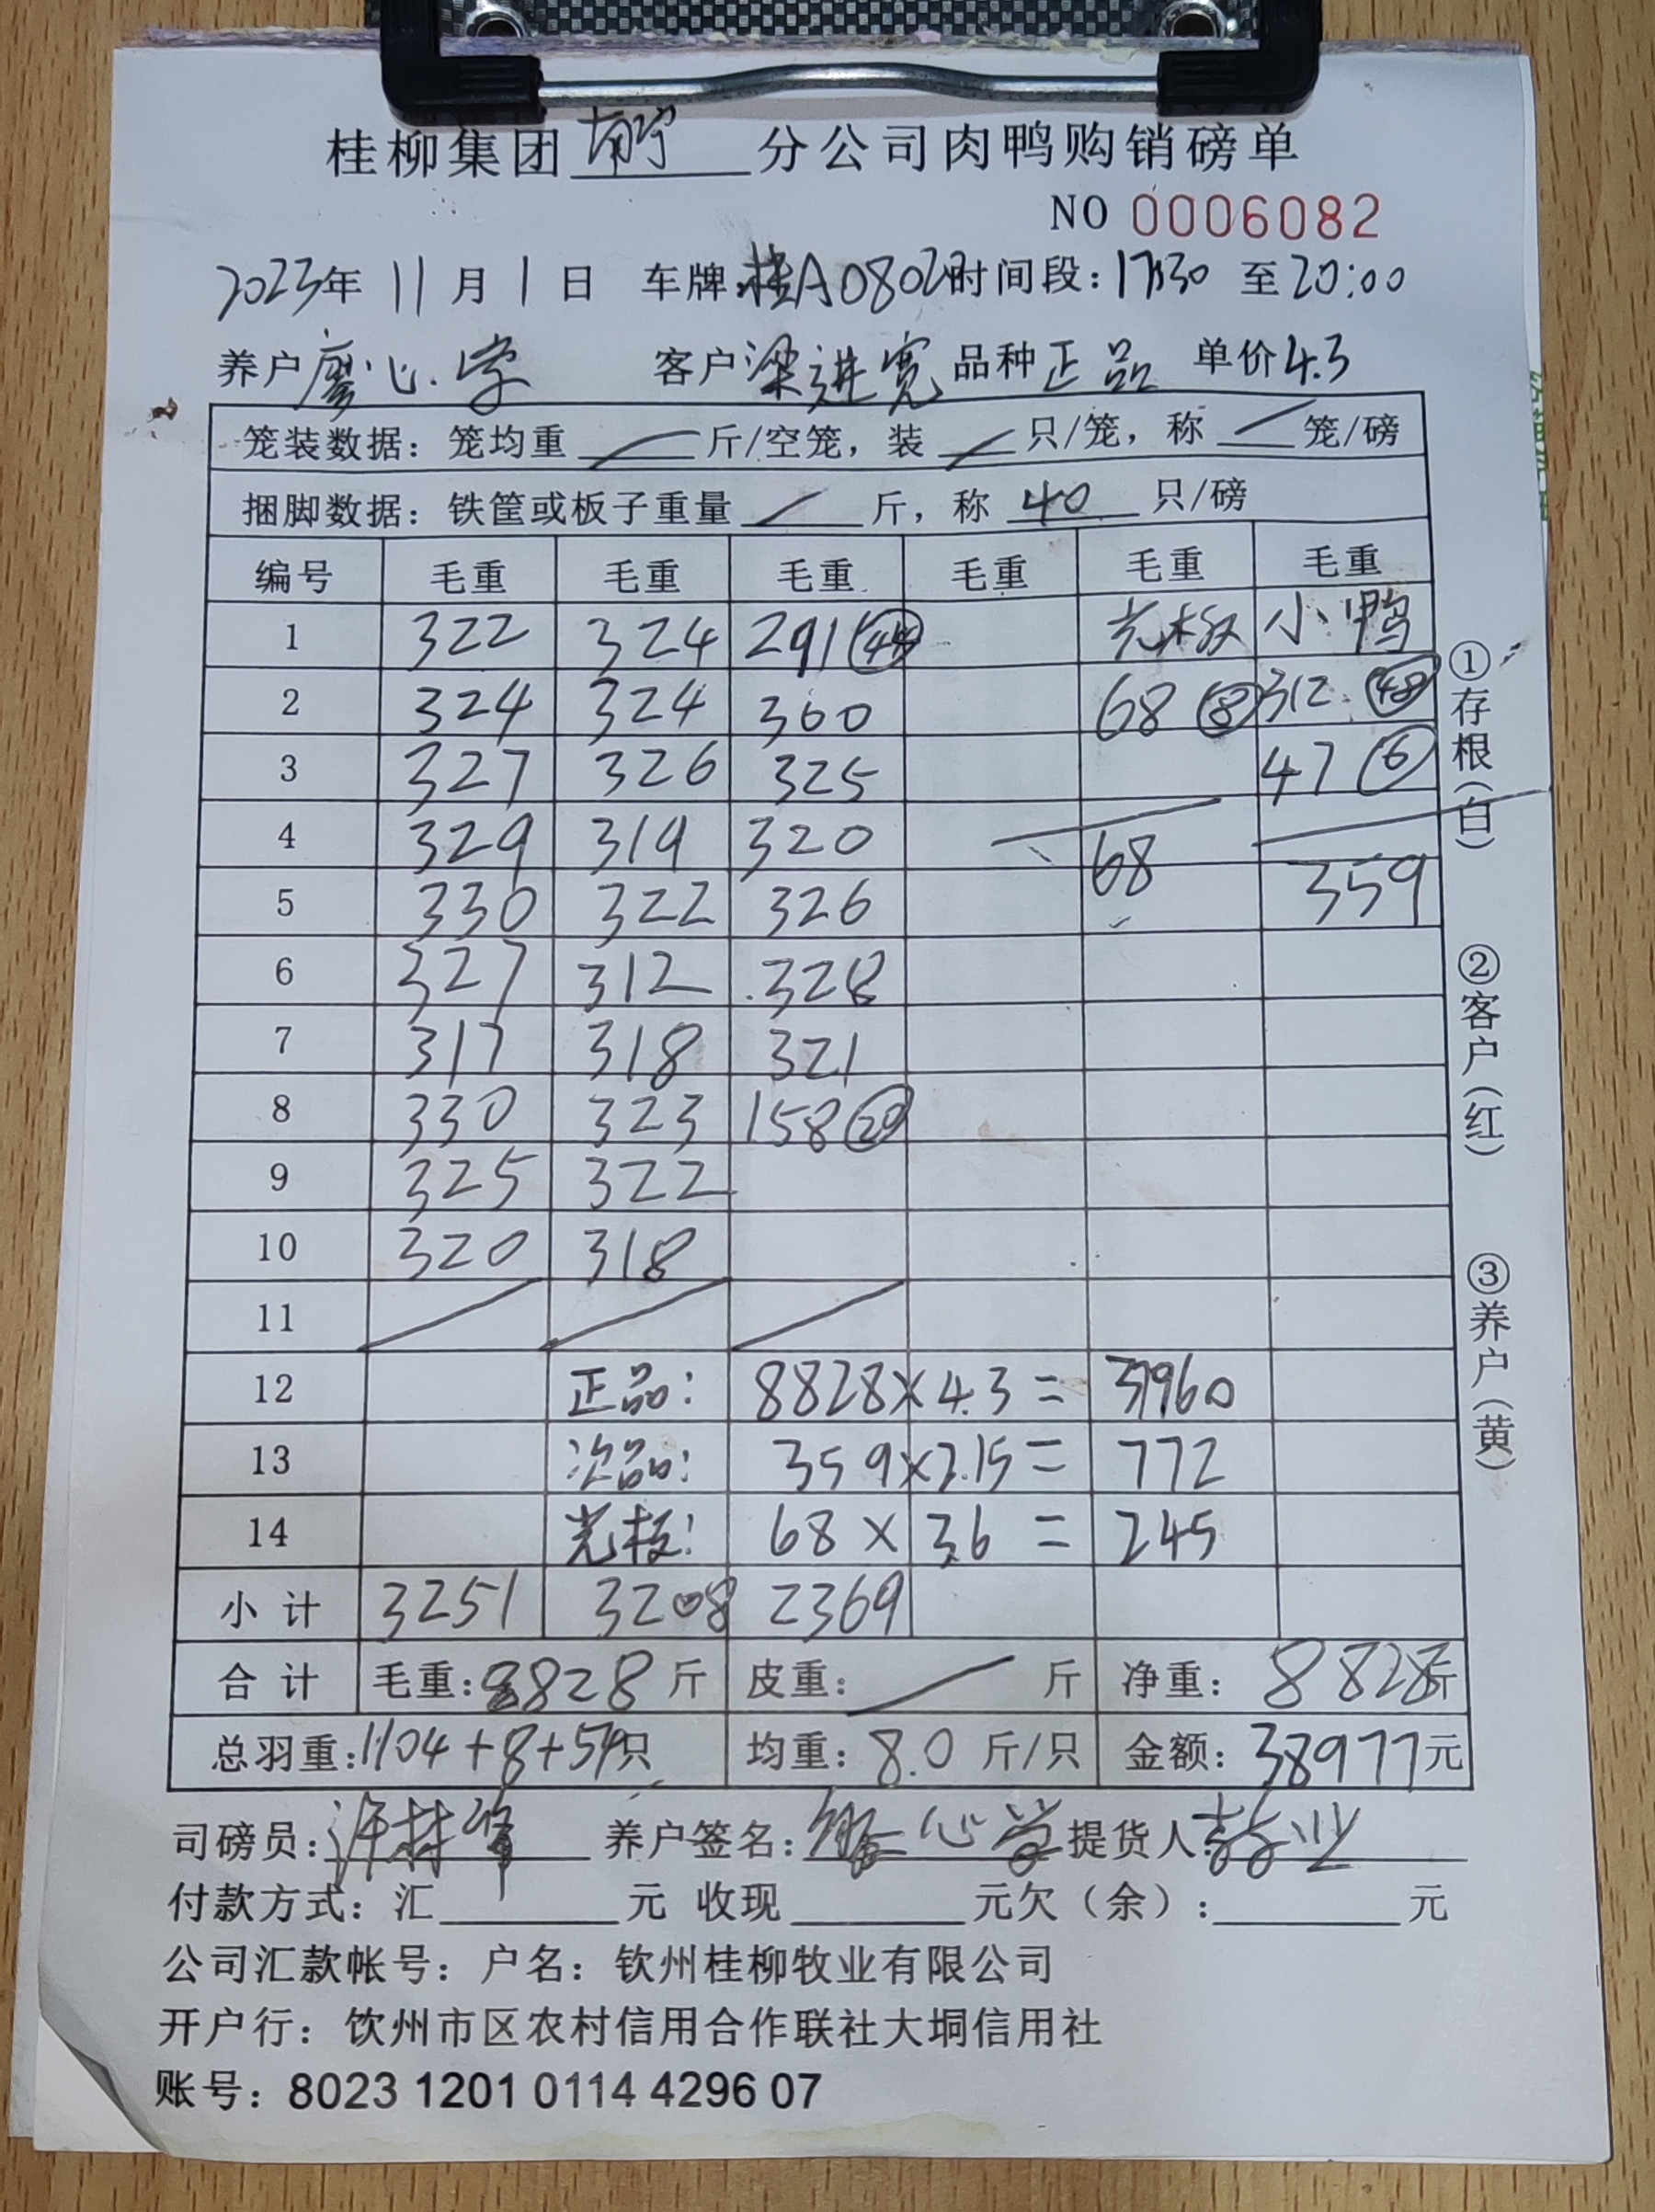 桂柳集团 南宁 分公司肉鸭购销磅单
NO 0006082
2023年 11 月 1 日 车牌: 桂A0802 时间段: 17:30 至 20:00
养户 廖心学 客户 梁进宽 品种 正品 单价 4.3
笼装数据: 笼均重 / 斤/空笼, 装 / 只/笼, 称 / 笼/磅
捆脚数据: 铁筐或板子重量 / 斤, 称 40 只/磅
编号 毛重 毛重 毛重 毛重 毛重 毛重
1 322 324 291 光板 小鸭
2 324 324 360 68 (8) 312 (48)
3 327 326 325 47 (6)
4 329 319 320 68
5 330 322 326 359
6 327 312 328
7 317 318 321
8 330 323 158 (20)
9 325 322
10 320 318
11
12 正品: 8828 × 4.3 = 37960
13 次品: 359 × 2.15 = 772
14 光板: 68 × 3.6 = 245
小计 3251 3208 2369
合计 毛重: 8828 斤 皮重: / 斤 净重: 8828 斤
总羽重: 1104+8+54 只 均重: 8.0 斤/只 金额: 38977 元
司磅员: 养户签名: 心学 提货人: 业
付款方式: 汇 元 收现 元欠(余): 元
公司汇款帐号: 户名: 钦州桂柳牧业有限公司
开户行: 钦州市区农村信用合作联社大垌信用社
账号: 8023 1201 0114 4296 07
①存根(白)
②客户(红)
③养户(黄)